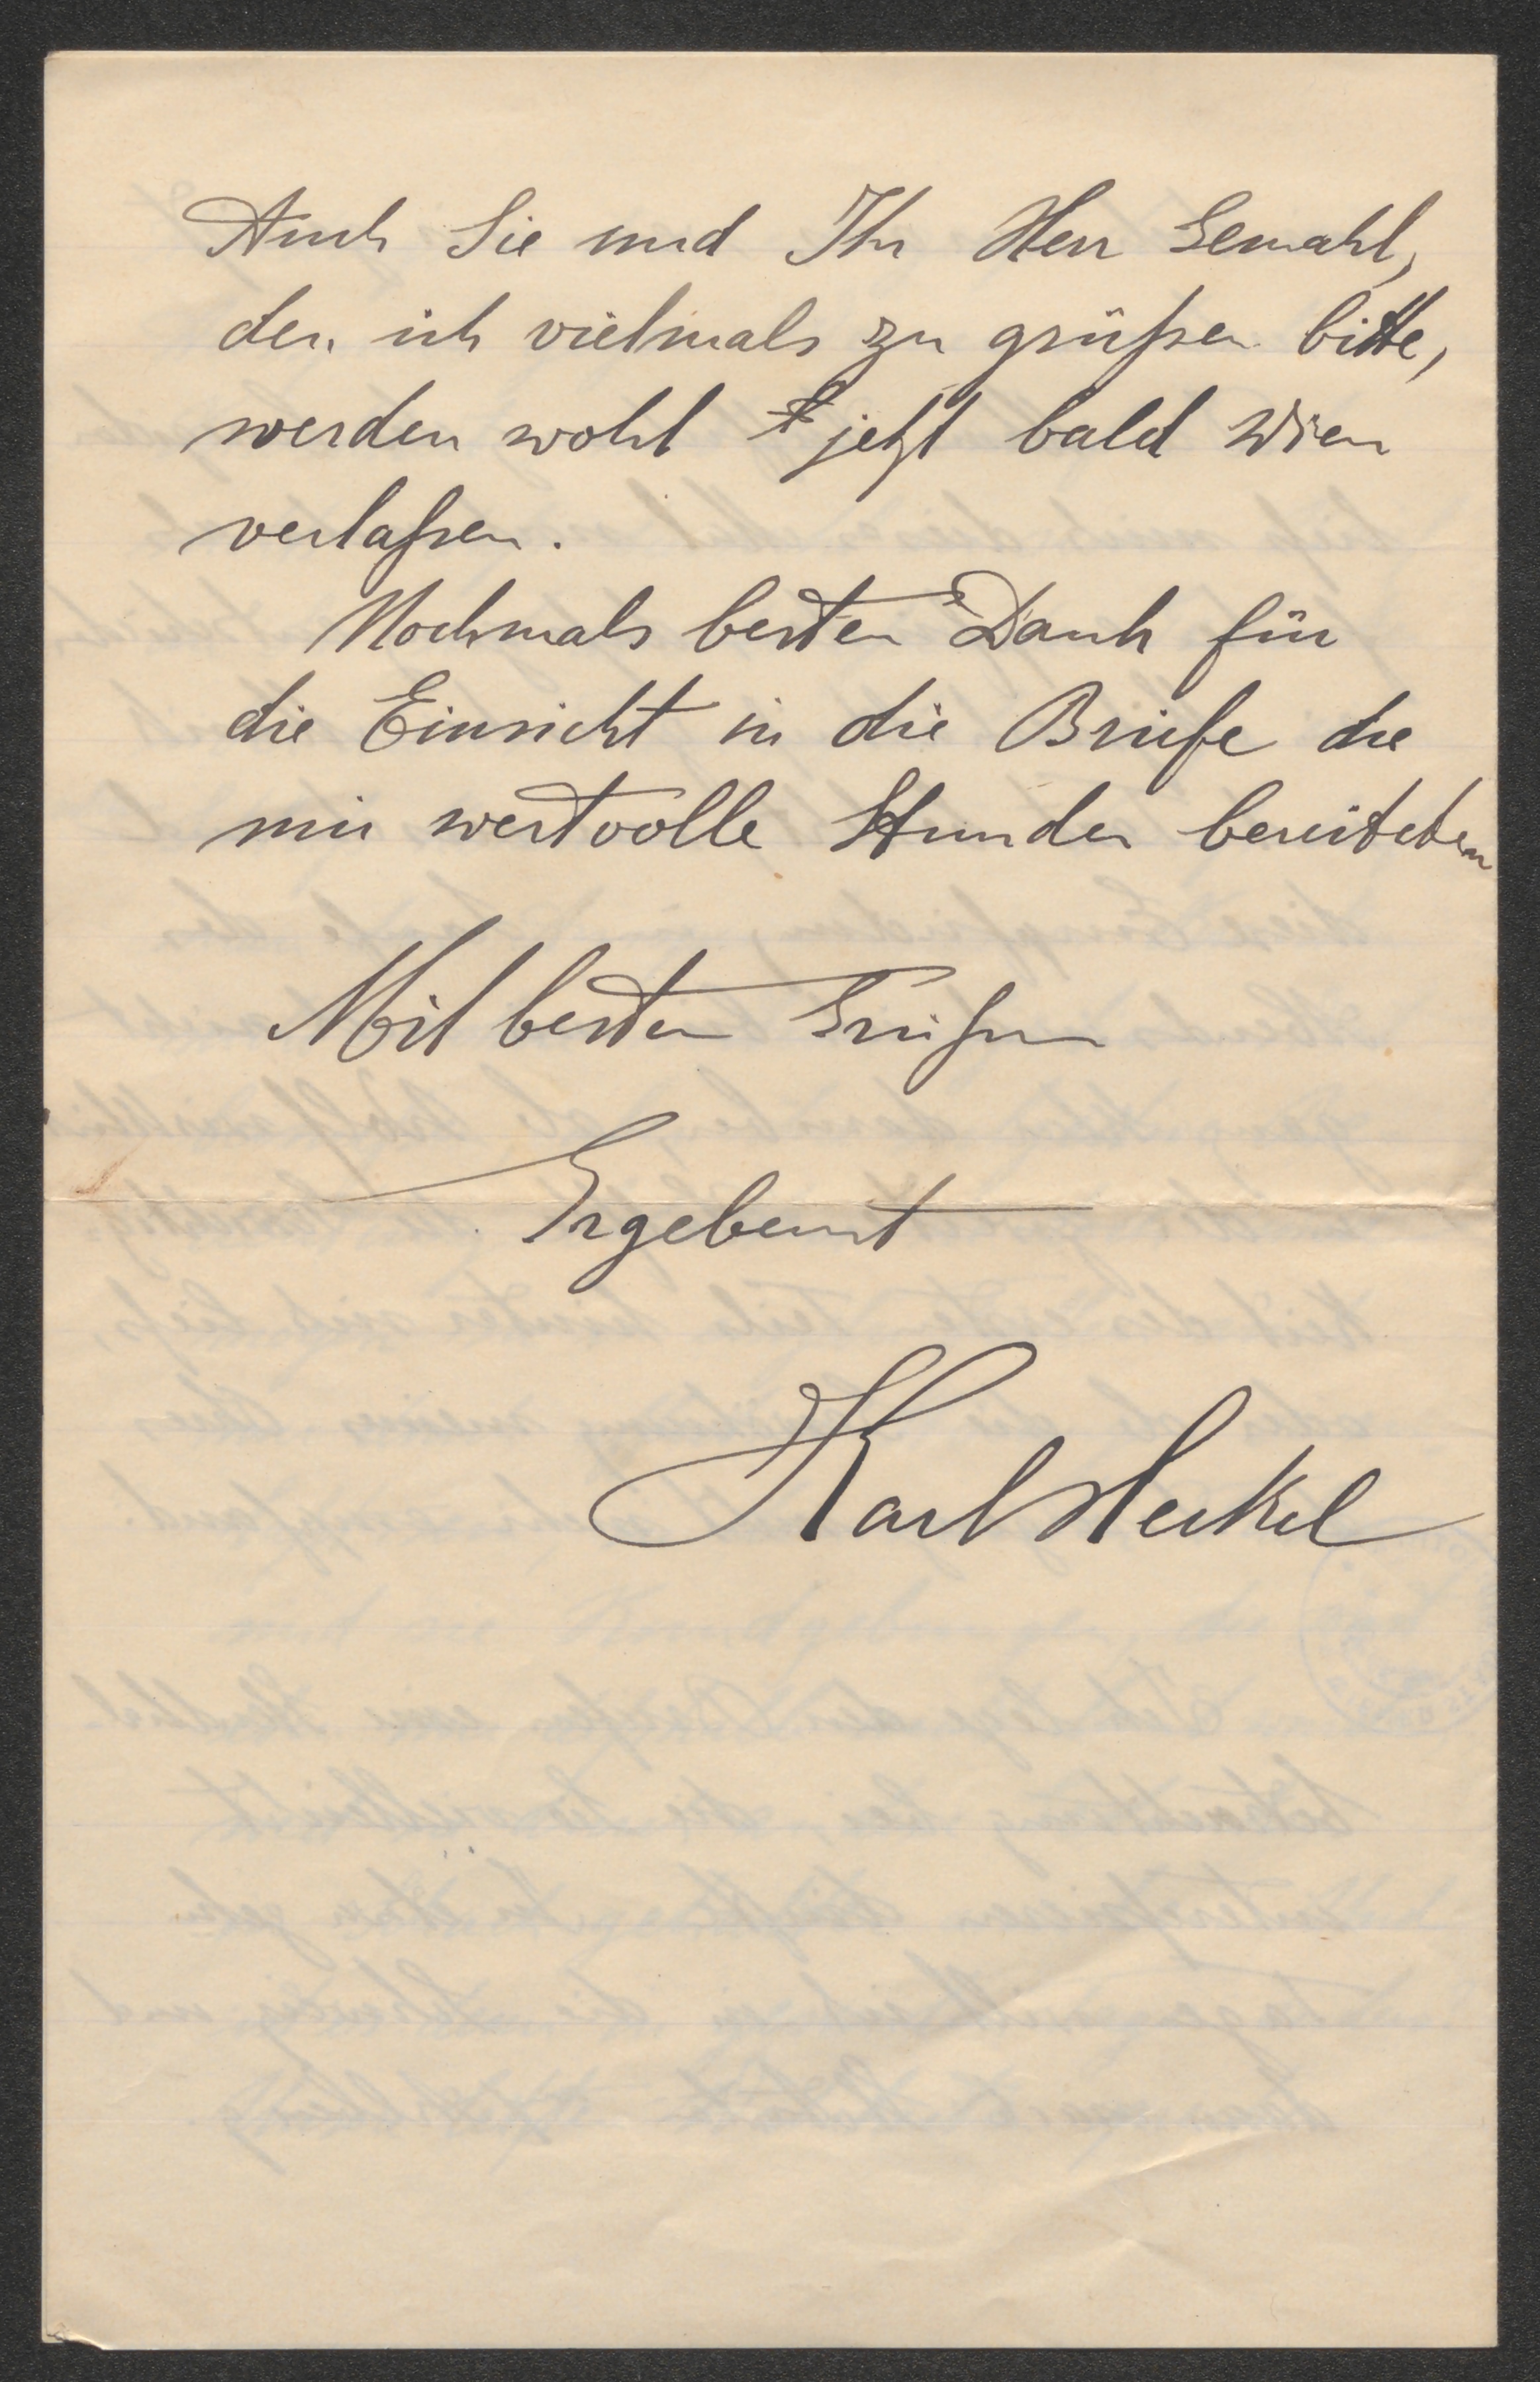 Auch Sie und Ihr Herr Gemahl,
den ich vielmals zu grüßen bitte,
werden wohl jetzt bald Wien
verlaßen.
Nochmals besten Dank für
die Einsicht in die Briefe die
mir wertvolle Stunden bereiteten
Mit besten Grüßen
Ergebenst
Karl Heckel